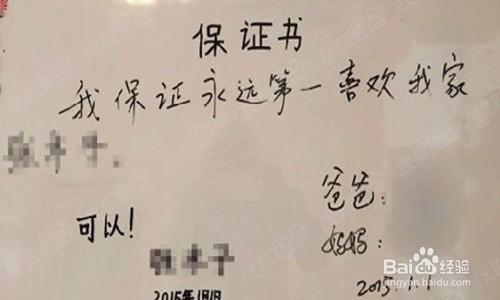 保证书
我保证永远第一喜欢我家
爸爸:
可以!
妈妈:
2015年1月1日
2015.1.1
Baidu 经验
jingyan.baidu.com